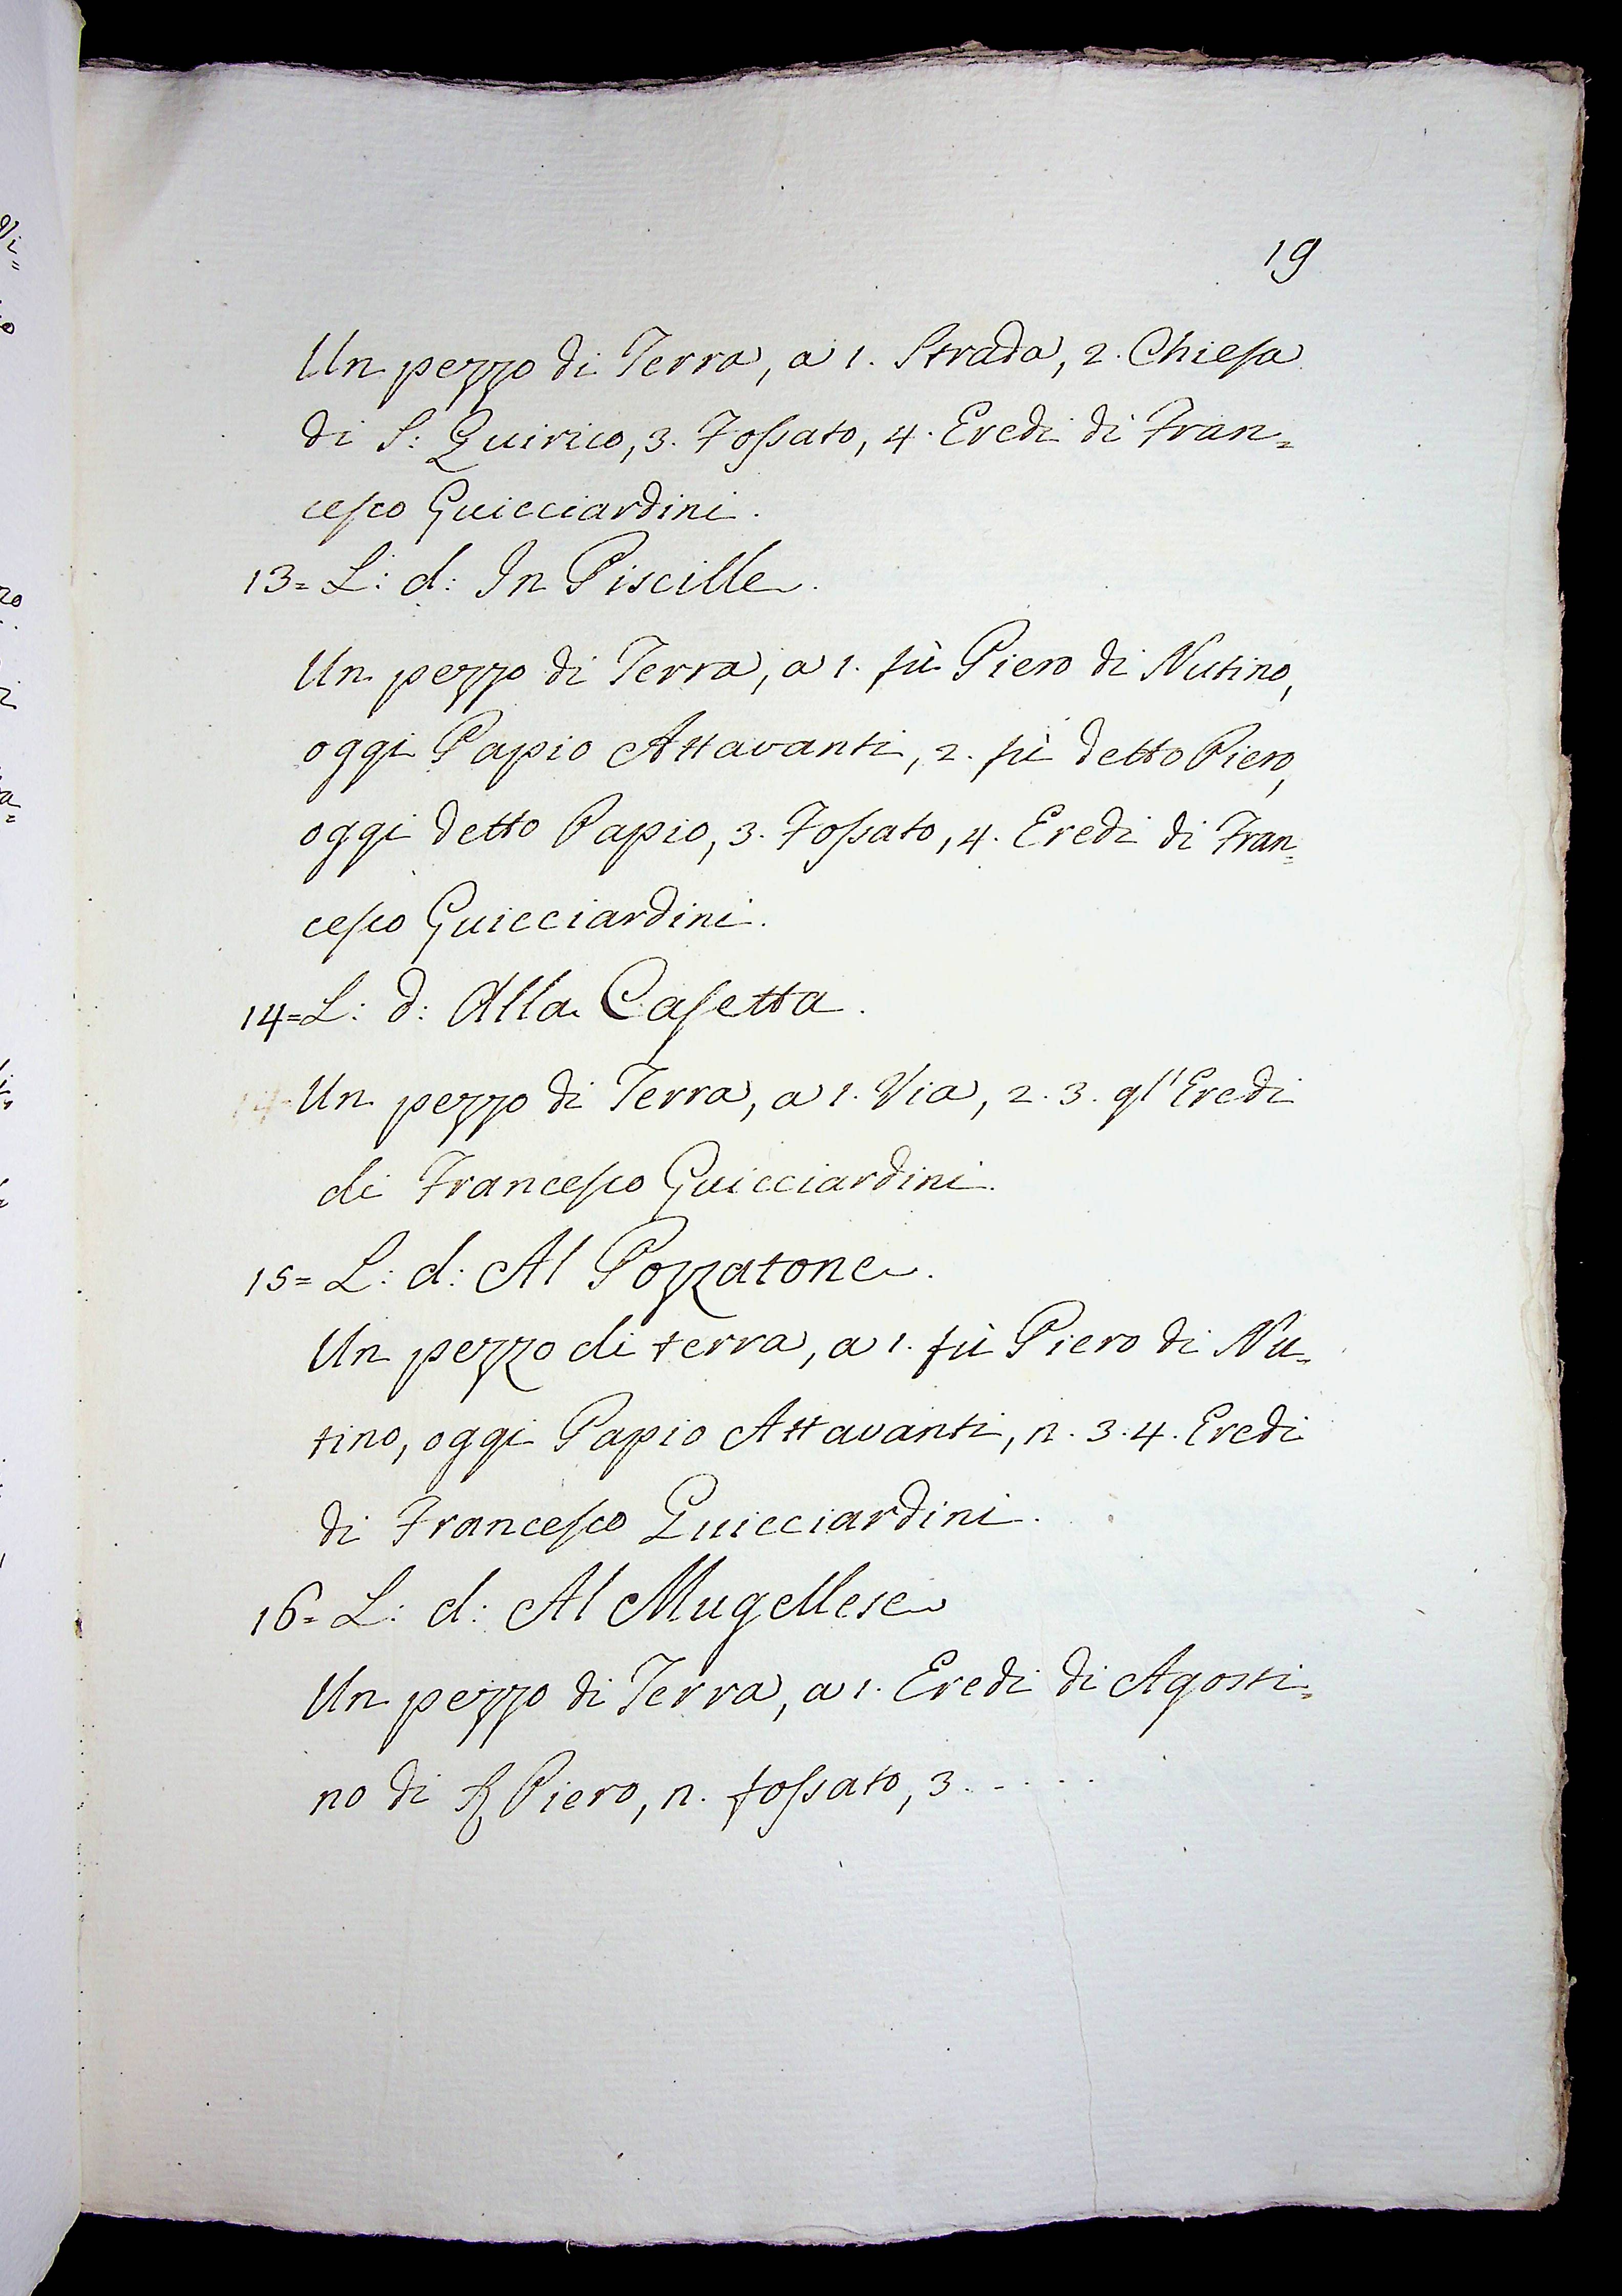 19
Un pezzo di Terra, a 1. Strada, 2. Chiesa
di S: Quirico, 3. Fossato, 4. Eredi di Fran=
cesco Guicciardini.
13= L: d: In Piscille.
Un pezzo di Terra, a 1. fù Piero di Nutino,
oggi Papio Attavanti, 2. fù detto Piero,
oggi detto Papio, 3. Fossato, 4. Eredi di Fran=
cesco Guicciardini.
14= L: d: Alla Casetta.
Un pezzo di Terra, a 1. Via, 2. 3. gl' Eredi
di Francesco Guicciardini.
15= L: d: Al Pozzatone.
Un pezzo di terra, a 1. fù Piero di Nu=
tino, oggi Papio Attavanti, 2. 3. 4. Eredi
di Francesco Guicciardini.
16= L: d: Al Mugellese
Un pezzo di Terra, a 1. Eredi di Agosti=
no di Piero, 2. fossato, 3. . . . .